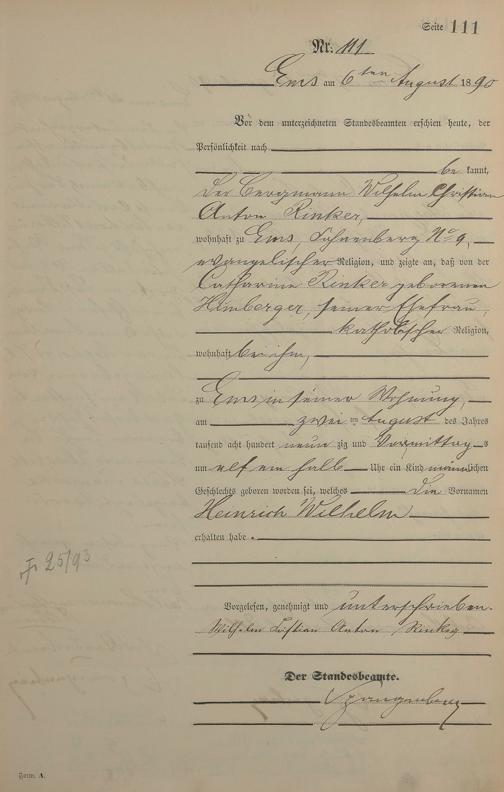 Seite 111
Nr. 111
Ems am 6ten August 1890
Vor dem unterzeichneten Standesbeamten erschien heute, der
Persönlichkeit nach
be kannt,
der Bergmann Wilhelm Christian
Anton Rinker,
wohnhaft zu Ems, No 9,
evangelischer Religion, und zeigte an, daß von der
Catharine Rinker geborenen
Himberger, seiner Ehefrau,
katholischer Religion,
wohnhaft bei ihm,
zu Ems in seiner Wohnung,
am zwei ten August des Jahres
tausend acht hundert neun zig und Vormittag s
um elf ein halb Uhr ein Kind männlichen
Geschlechts geboren worden sei, welches die Vornamen
Heinrich Wilhelm
erhalten habe.
25/93
Vorgelesen, genehmigt und unterschrieben.
Wilhelm Cristian Anton Rinker
Der Standesbeamte.
Spangenberg
Form. A.